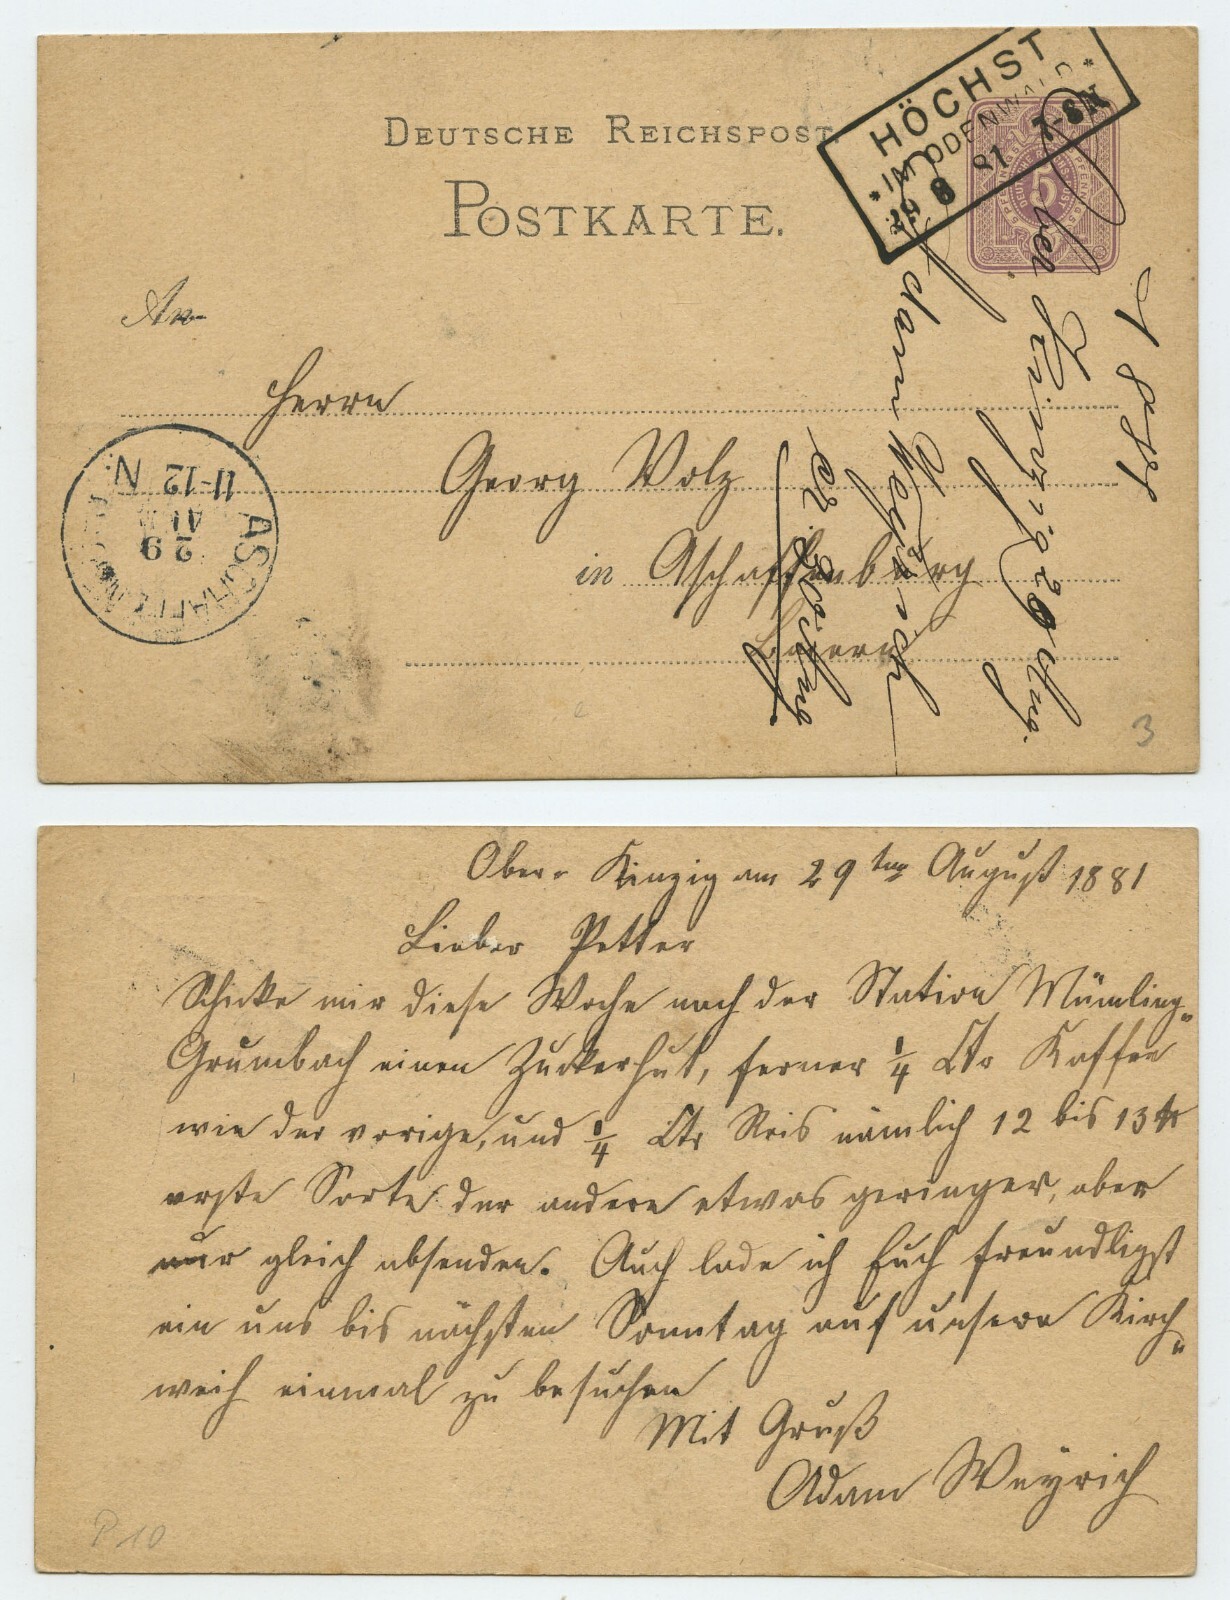 DEUTSCHE REICHSPOST.
POSTKARTE.
HÖCHST
* IM ODENWALD *
8 81 7-8N
5
An
Herrn
Georg Volz
in Aschaffenburg
Bayern
ASCHAFFENBURG
29
AUG
11-12 N.
1881
Ober Kinzig 29 Aug.
Adam Weyrich
3
Ober-Kinzig am 29ten August 1881
Lieber Petter
Schicke mir diese Woche nach der Station Mümling-
Grumbach einen Zuckerhut, ferner 1/4 Ctr Kaffee
wie der vorige, und 1/4 Ctr Reis nämlich 12 bis 13 ℔
erste Sorte der andere etwas geringer, aber
nur gleich absenden. Auch lade ich Euch freundligst
ein uns bis nächsten Sonntag auf unsere Kirch-
weih einmal zu besuchen
Mit Gruß
Adam Weyrich
P 10